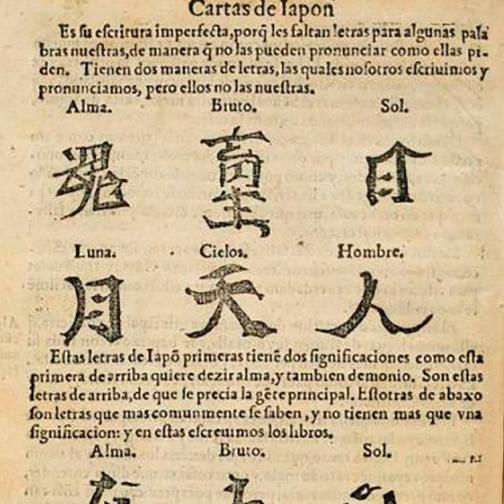 Cartas de Iapon
Es su escritura imperfecta, porq̃ les faltan letras para algunas pala
bras nuestras, de manera q̃ no las pueden pronunciar como ellas pi-
den. Tienen dos maneras de letras, las quales nosotros escriuimos y
pronunciamos, pero ellos no las nuestras.
Alma. Bruto. Sol.
魂 畜生 日
Luna. Cielos. Hombre.
月 天 人
Estas letras de Iapõ primeras tienẽ dos significaciones como esta
primera de arriba quiere dezir alma, y tambien demonio. Son estas
letras de arriba, de que se precia la gẽte principal. Estotras de abaxo
son letras que mas comunmente se saben, y no tienen mas que vna
significacion: y en estas escreuimos los libros.
Alma. Bruto. Sol.